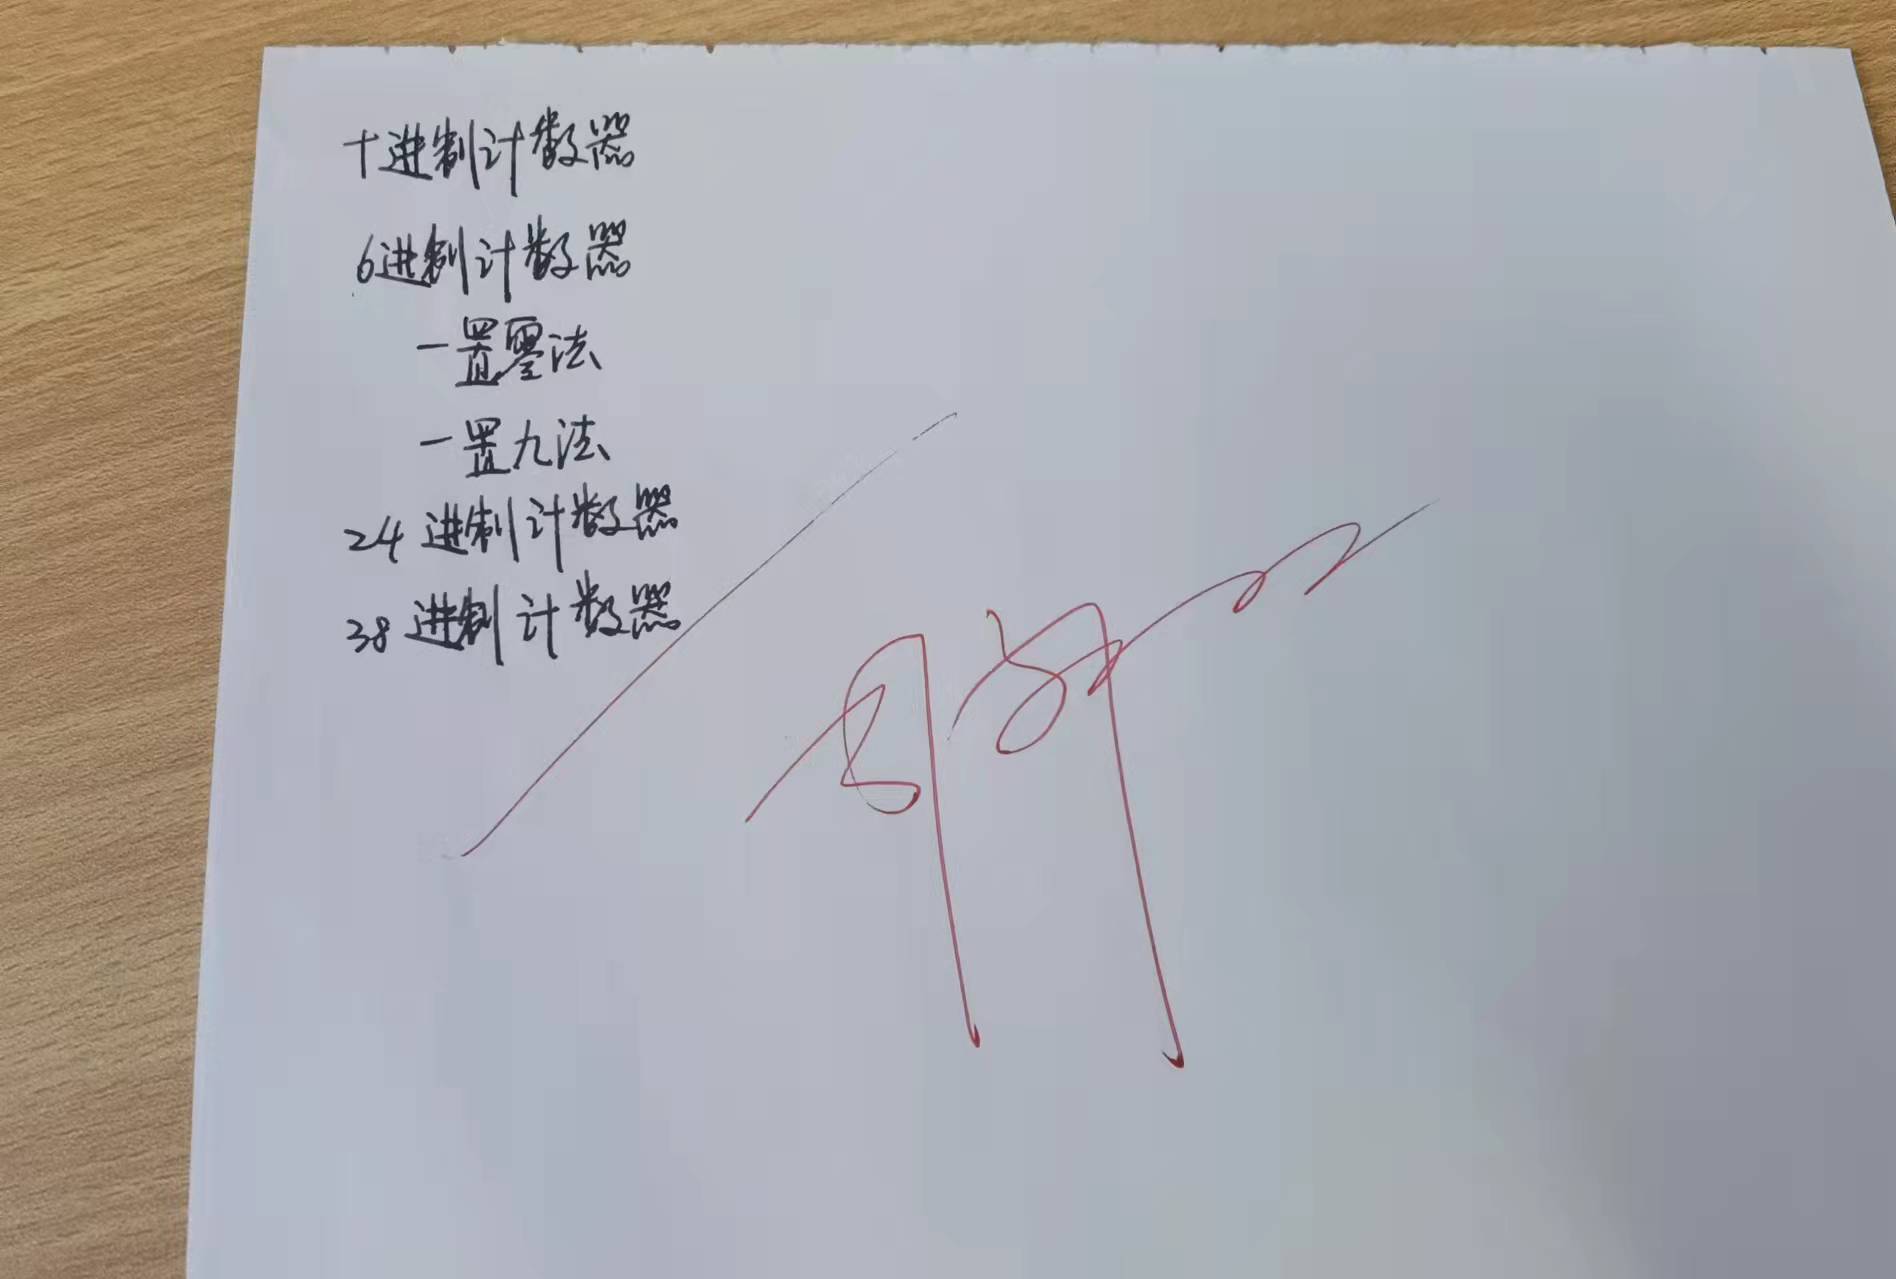 十进制计数器
6进制计数器
一置零法
一置九法
24进制计数器
38进制计数器